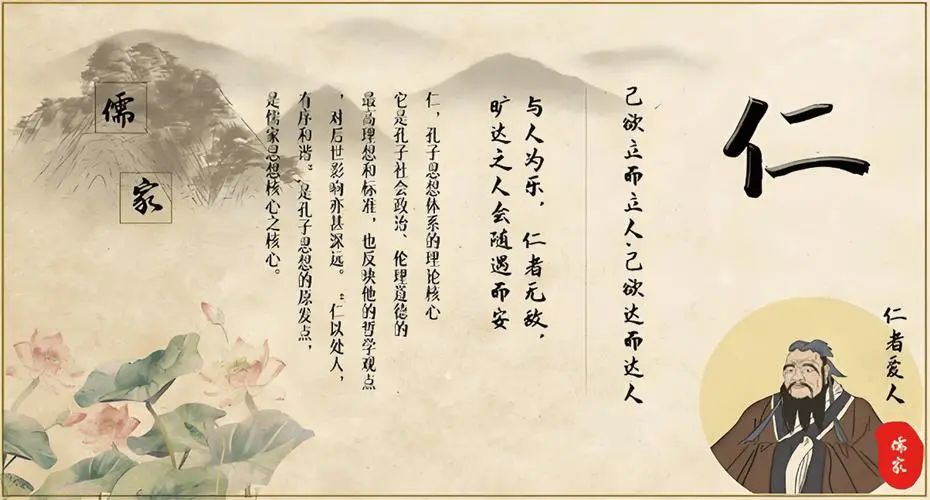 仁
仁者爱人
儒家
己欲立而立人,己欲达而达人
与人为乐，仁者无敌，
旷达之人会随遇而安
仁，孔子思想体系的理论核心
它是孔子社会政治、伦理道德的
最高理想和标准，也反映他的哲学观点
，对后世影响亦甚深远。“仁以处人，
有序和谐”是孔子思想的原发点，
是儒家思想核心之核心。
儒
家